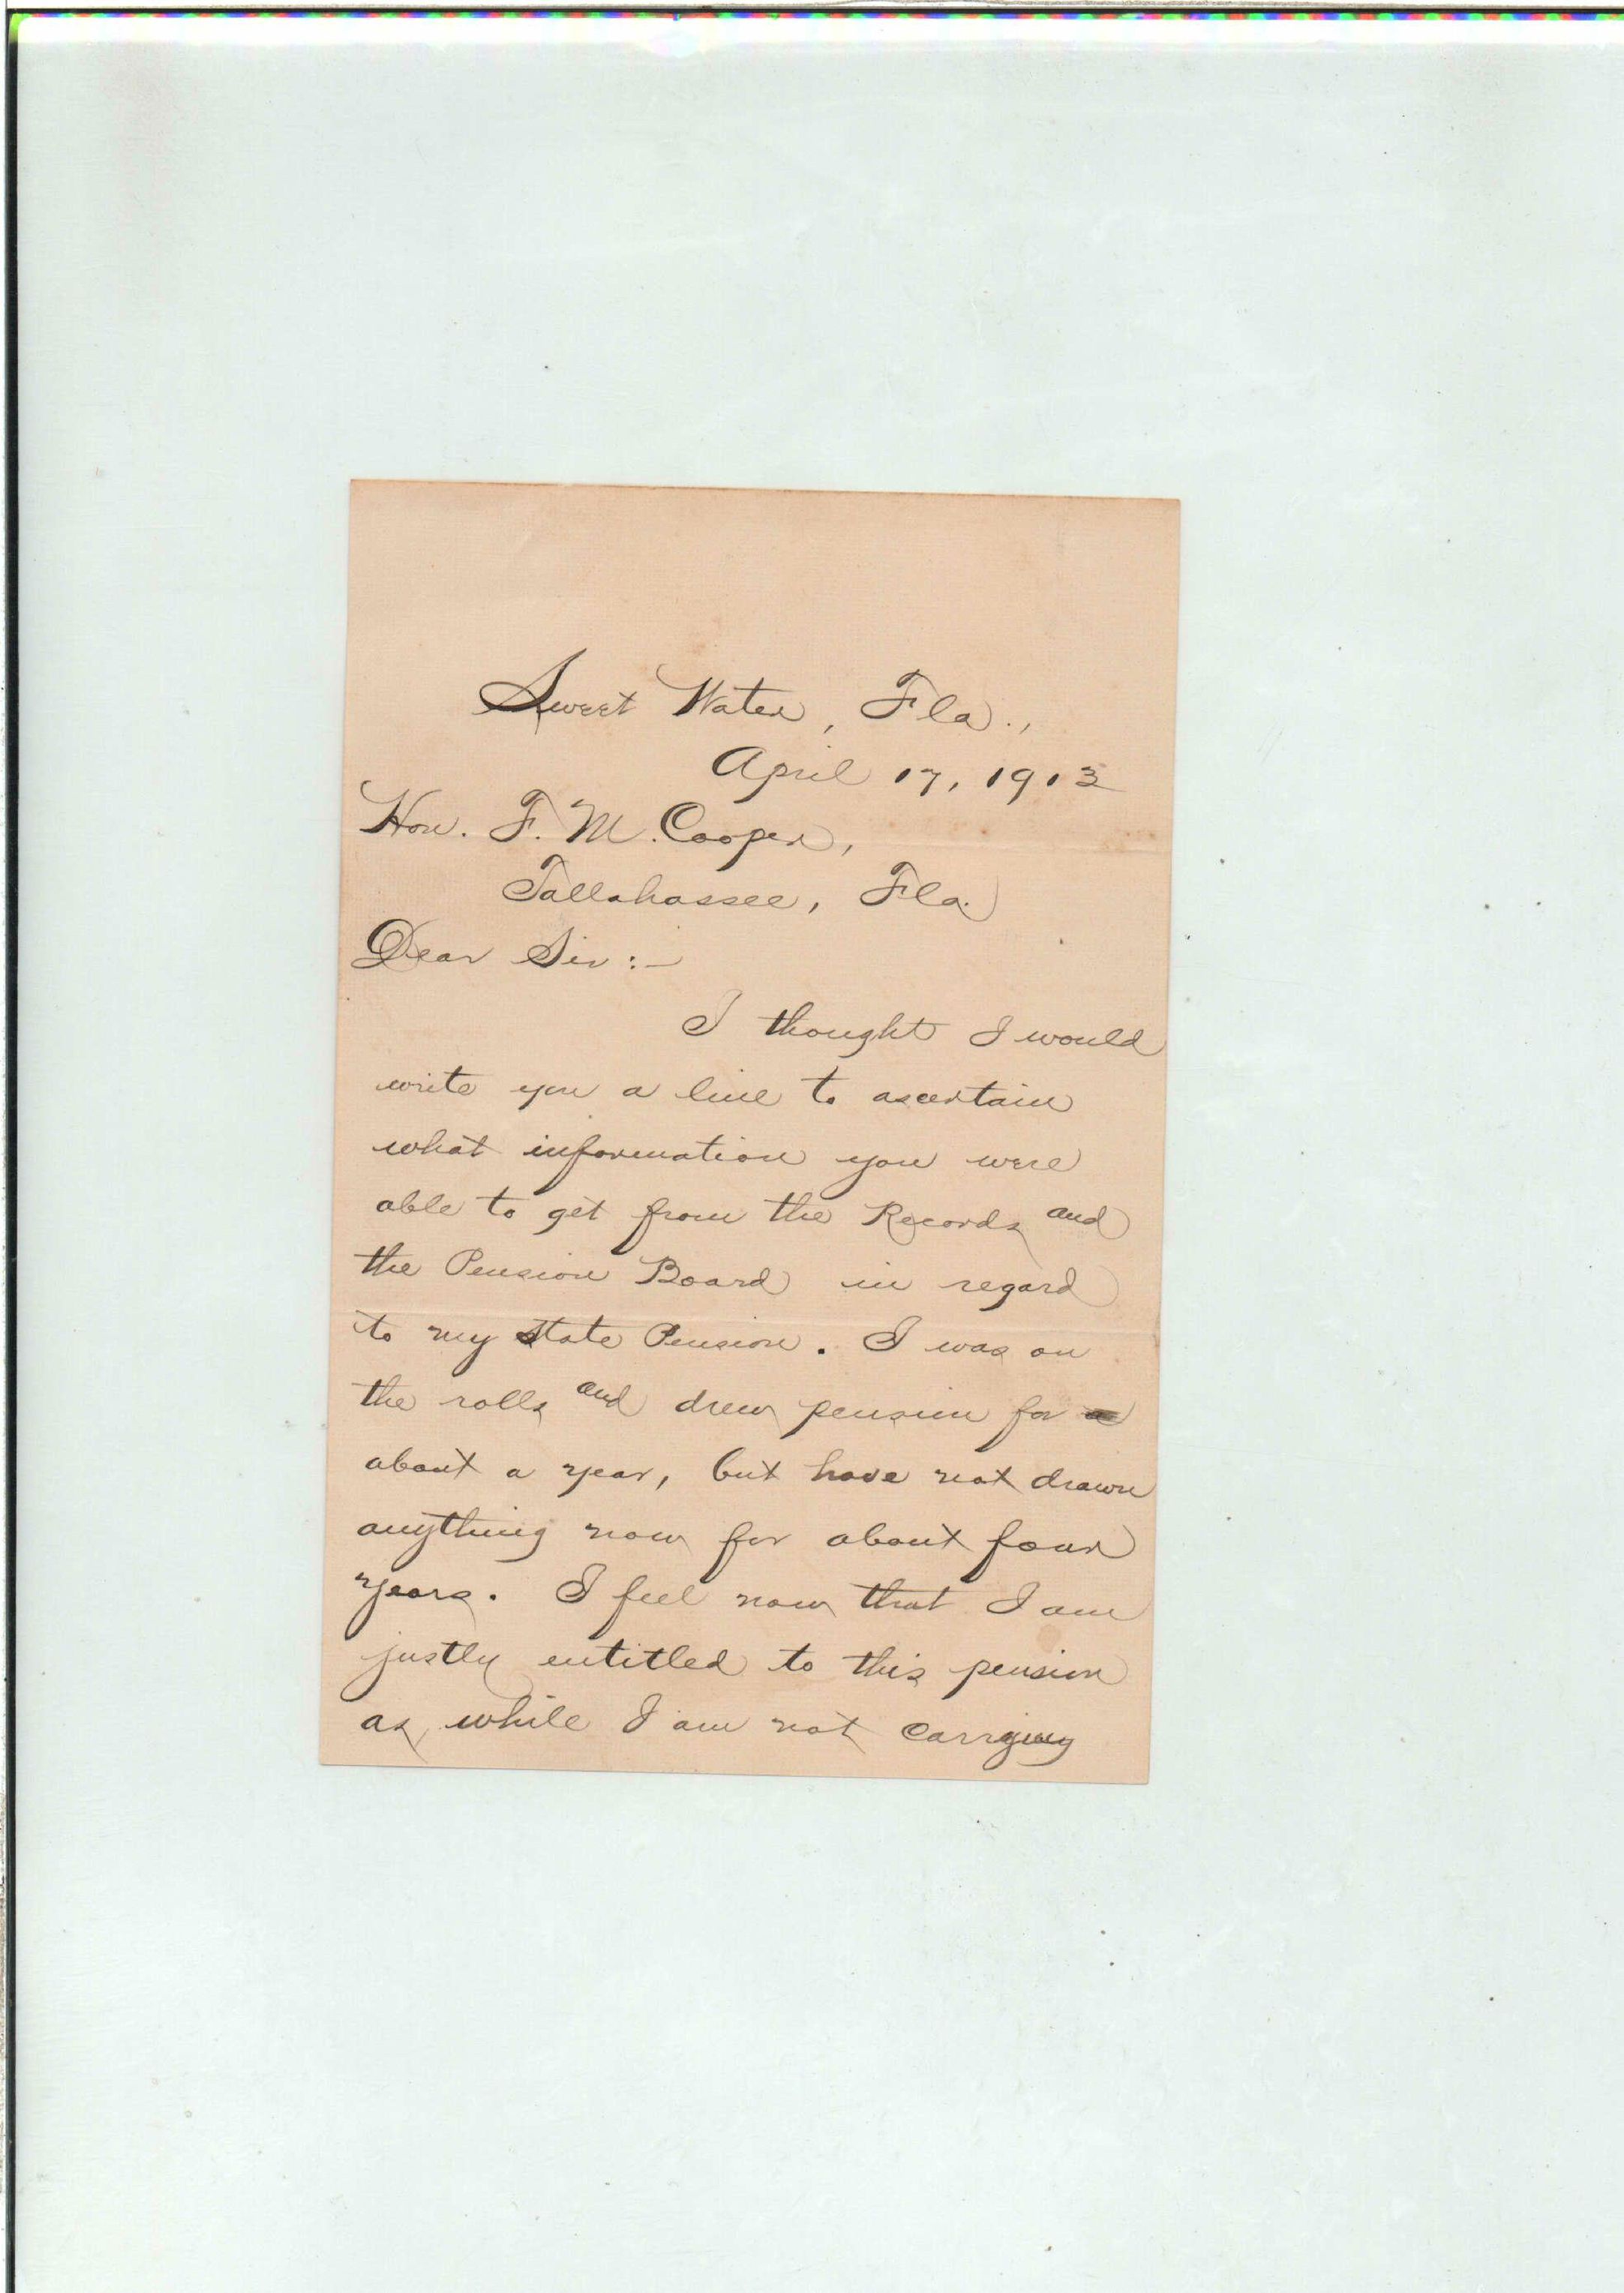 Sweet Water, Fla.,
April 17, 1913
Hon. F. M. Cooper,
Tallahassee, Fla.
Dear Sir:-
I thought I would
write you a line to ascertain
what information you were
able to get from the Records and
the Pension Board in regard
to my State Pension. I was on
the rolls and drew pension for
about a year, but have not drawn
anything now for about four
years. I feel now that I am
justly entitled to this pension
as, while I am not carrying